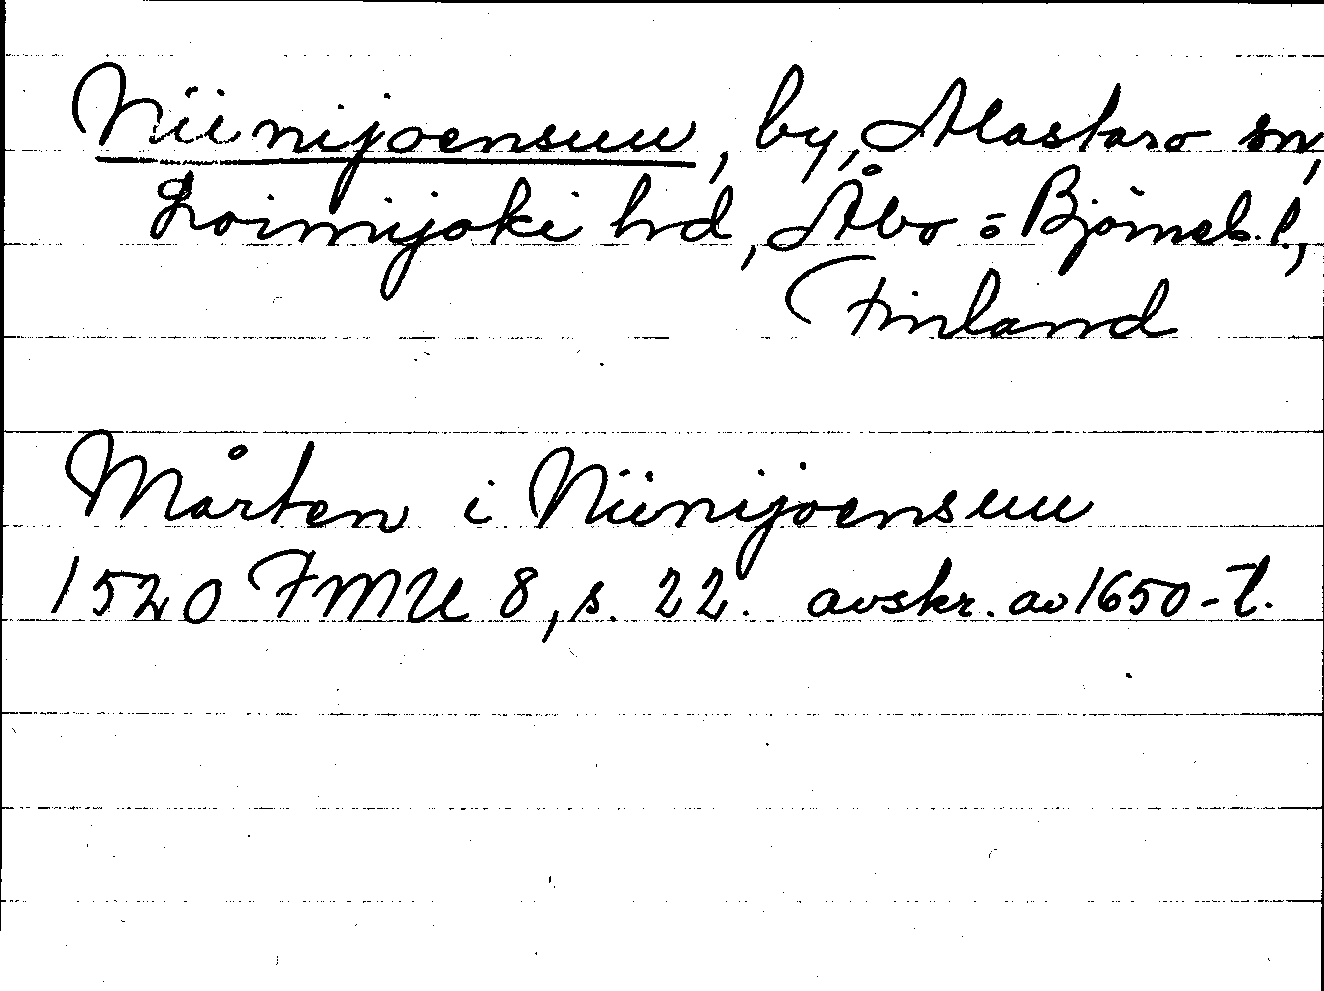 Niinijoensuu, by, Alastaro sn,
Loimijoki hd, Åbo = Björneb. l.,
Finland
Mårten i Niinijoensuu
1520 FMU 8, s. 22. avskr. av 1650-t.